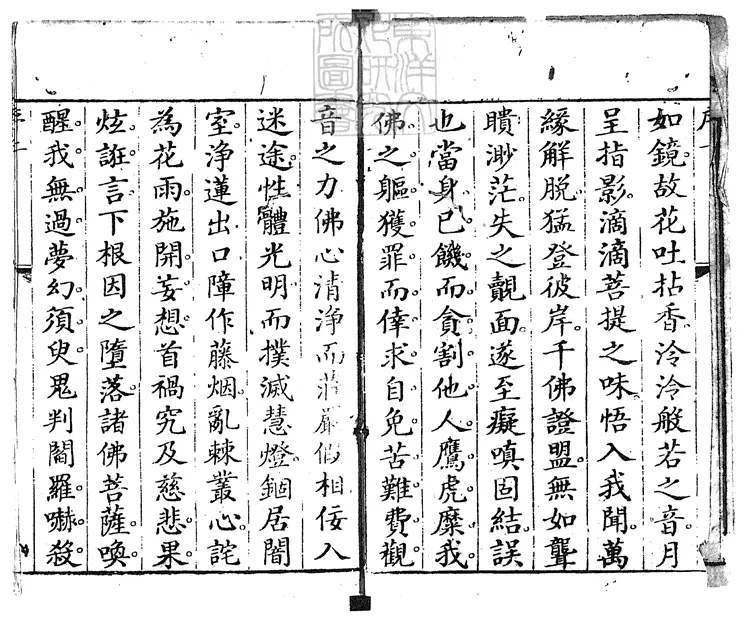 如鏡故花吐拈香泠泠般若之音月
呈指影滴滴菩提之味悟入我聞萬
緣解脱猛登彼岸千佛證盟無如聾
瞶渺茫失之覿面遂至癡嗔固結誤
也當身已饑而貪割他人鷹虎糜我
佛之軀獲罪而倖求自免苦難費觀
音之力佛心清淨而莊嚴假相佞入
迷途性體光明而撲滅慧燈錮居闇
室淨蓮出口障作藤烟亂棘叢心詫
為花雨施開妄想首禍究及慈悲果
炫誑言下根因之墮落諸佛菩薩喚
醒我無過夢幻須臾鬼判閻羅嚇殺